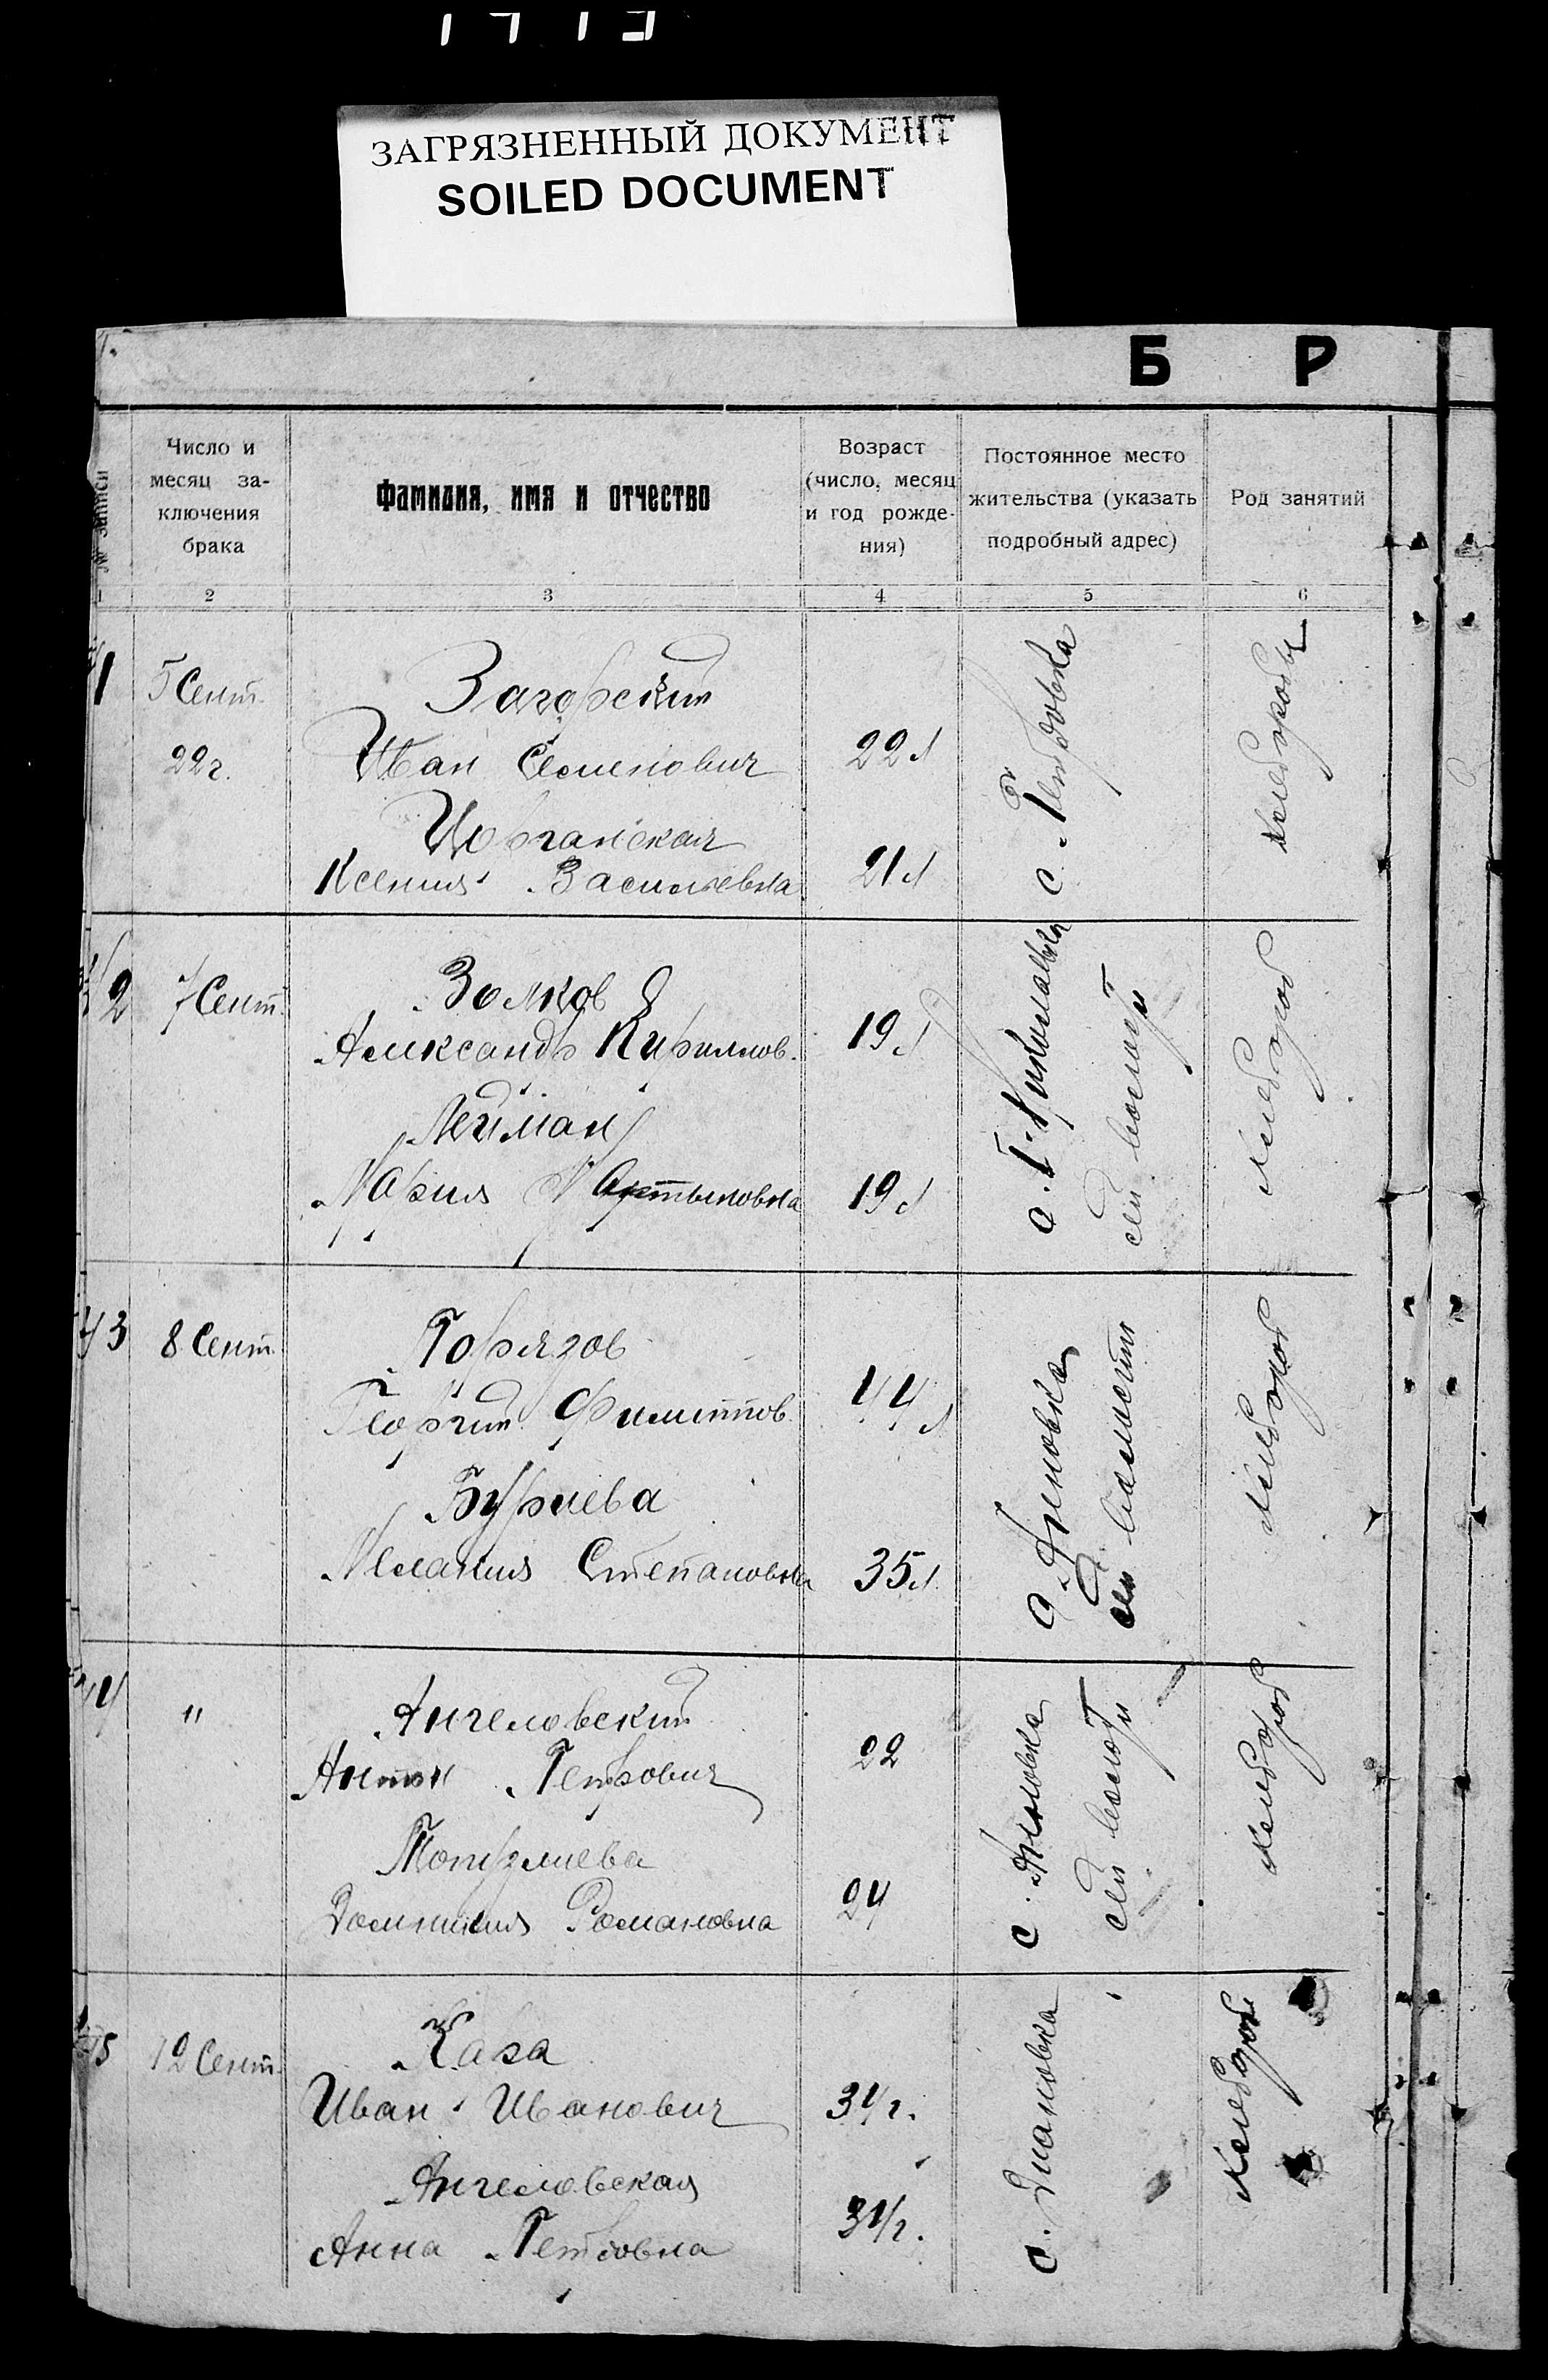 ЗАГРЯЗНЕННЫЙ ДОКУМЕНТ
SOILED DOCUMENT
Б Р
№ записи
Число и месяц за-
ключения
брака
Фамилия, имя и отчество
Возраст
(число, месяц
и год рожде-
ния)
Постоянное место
жительства (указать
подробный адрес)
Род занятий
1 2 3 4 5 6
1
5 Сент.
22 г.
Загорский
Иван Семенович
22 л
Ксения Васильевна
21 л
с. Петровка
хлеборобы
2
7 Сент.
Волков
Александр Кириллов.
19 л
Лейман
Мария Мартыновна
19 л
хлебороб
43
8 Сент.
Горязов
Георгий Филиппов.
44 л
Бурлева
Мелания Степановна
35 л
хлебороб
44
"
Ангеловский
Антон Петрович
22
Романовна
24
хлебороб
45
12 Сент.
Каза
Иван Иванович
31 г.
Ангеловская
Анна Петровна
31 г.
с. Диановка
хлебороб